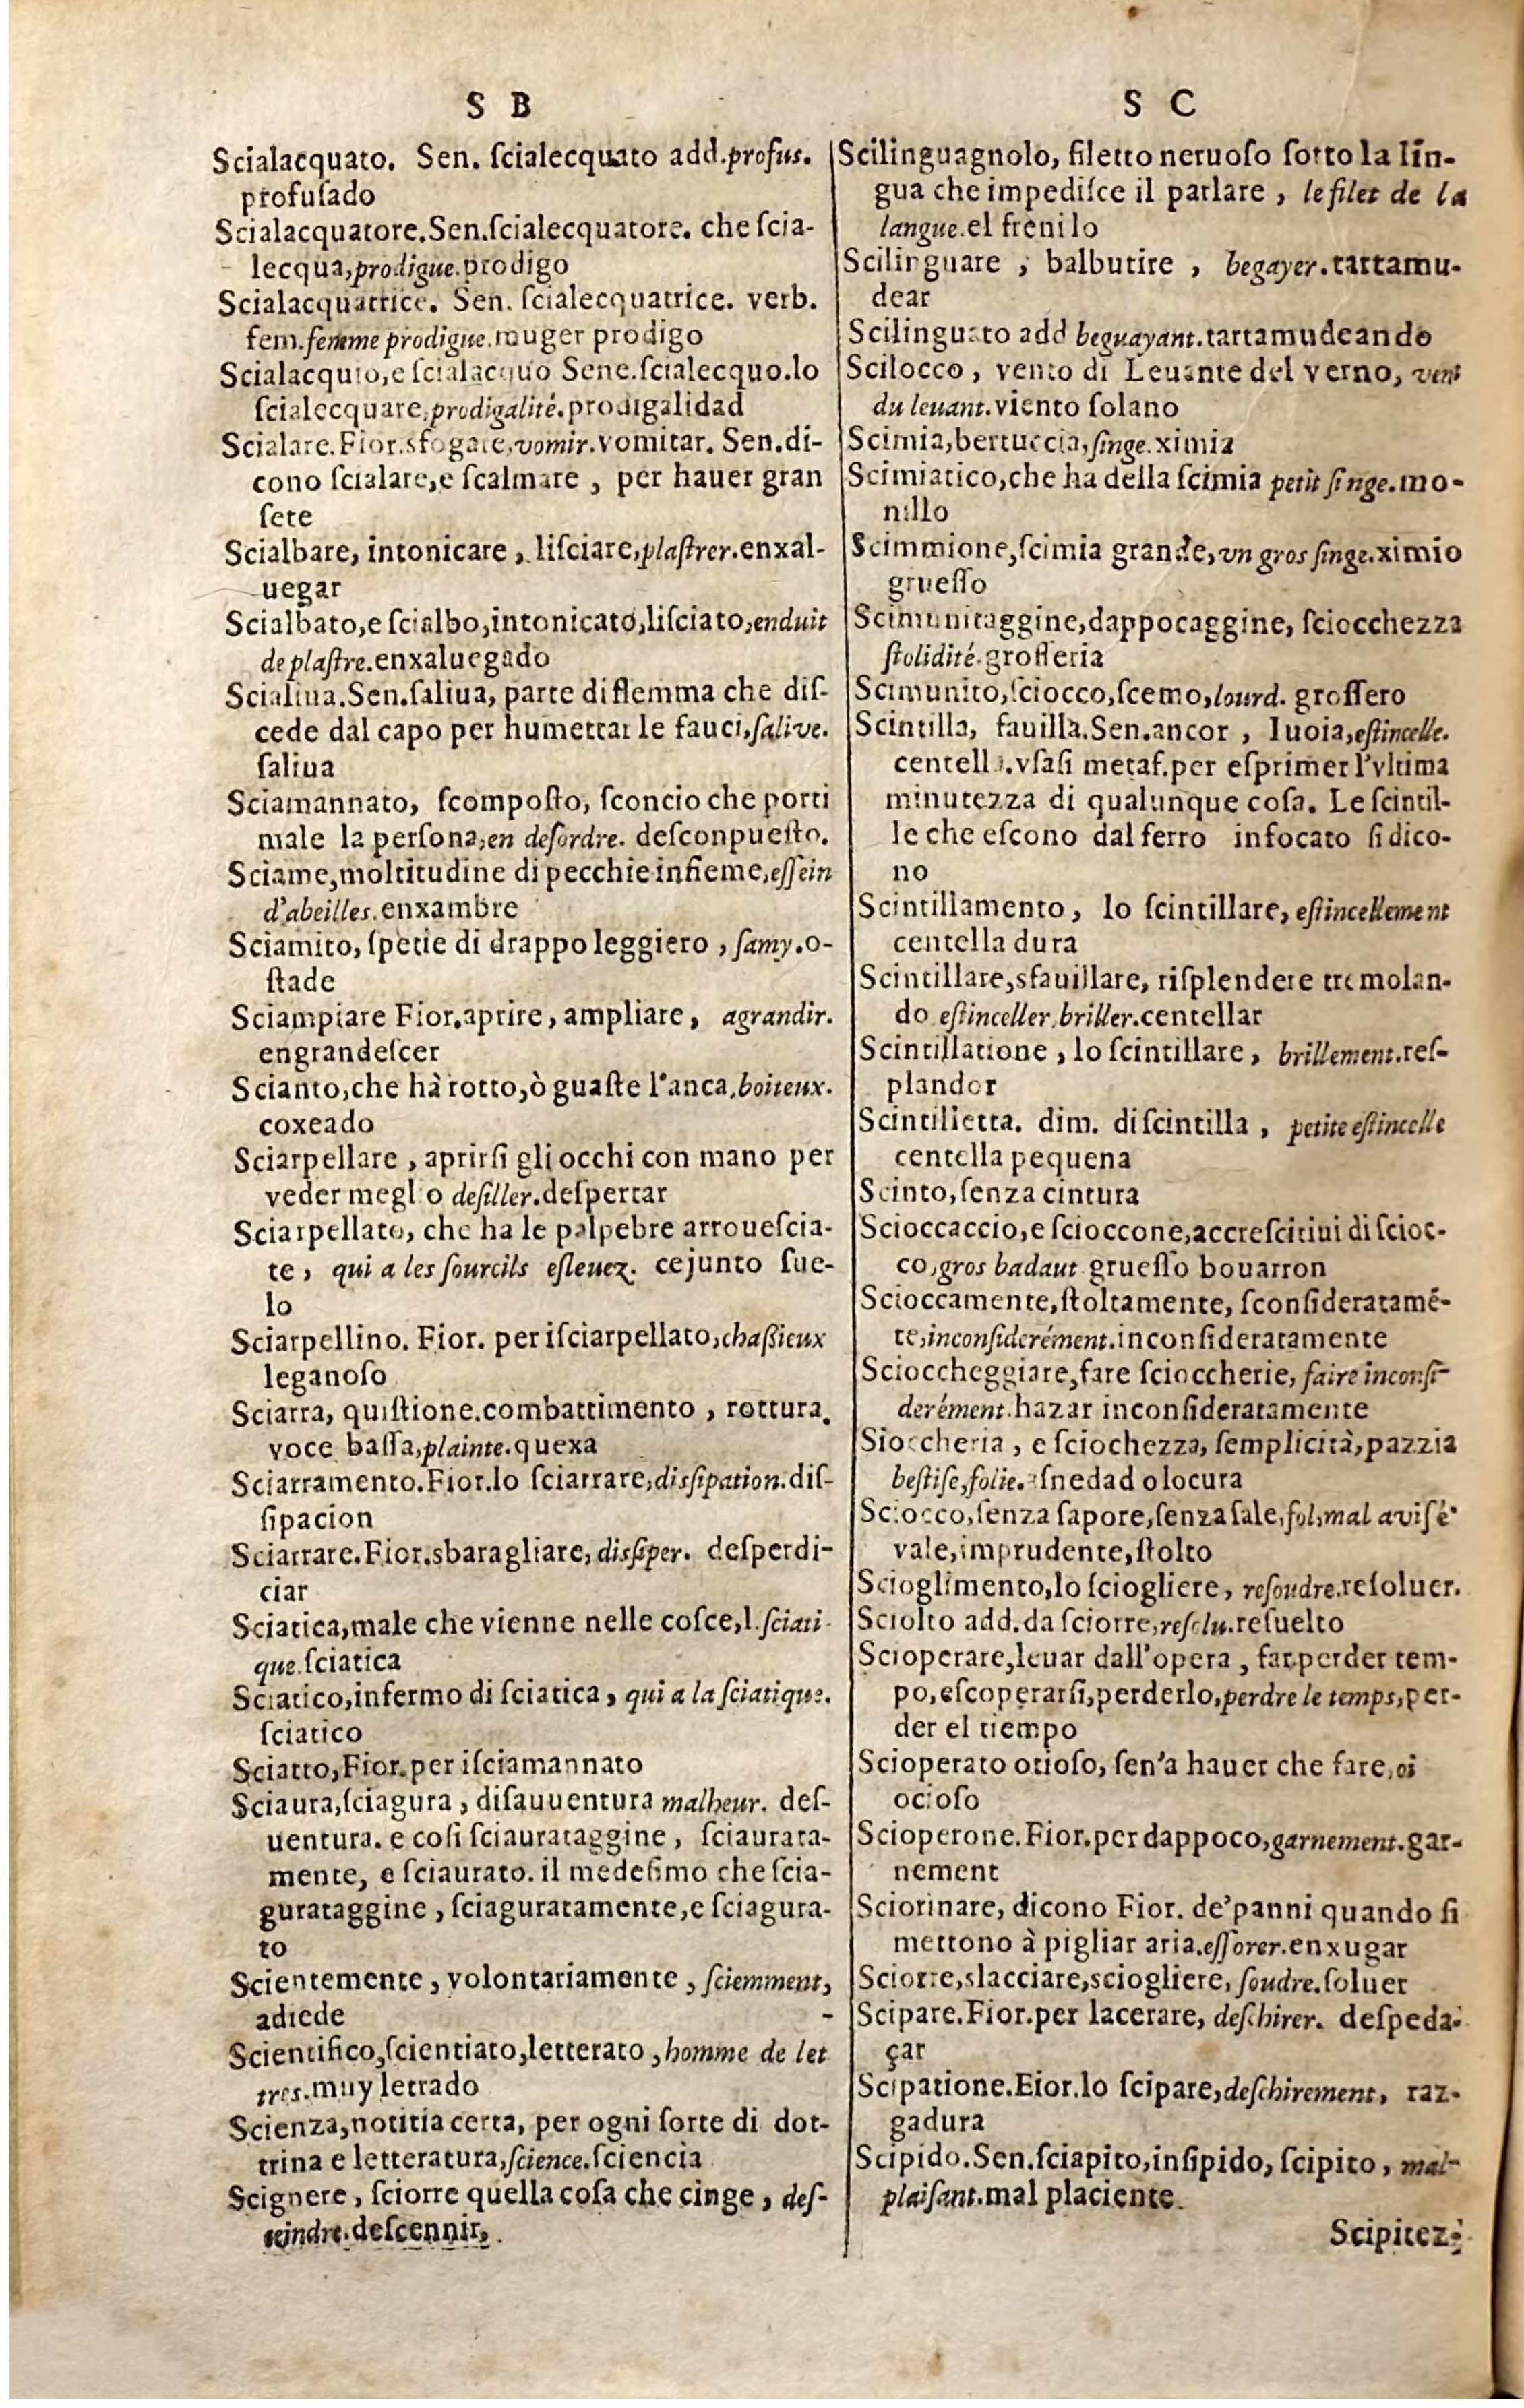 S B
Scialacquato. Sen. ſcialecquato add.profus.
profuſado
Scialacquatore.Sen.ſcialecquatore. che ſcia-
lecqua,prodigue.prodigo
Scialacquatrice. Sen. ſcialecquatrice. verb.
fem.femme prodigue.muger prodigo
Scialacquio,e ſcialacquo Sene.ſcialecquo.lo
ſcialecquare,prodigalité.prodigalidad
Scialare.Fior.sfogare,vomir.vomitar. Sen.di-
cono ſcialare,e ſcalmare , per hauer gran
ſete
Scialbare, intonicare , liſciare,plaſtrer.enxal-
uegar
Scialbato,e ſcialbo,intonicato,liſciato,enduit
de plaſtre.enxaluegado
Scialiua.Sen.ſaliua, parte di flemma che diſ-
cede dal capo per humettar le fauci,ſalive.
ſaliua
Sciamannato, ſcompoſto, ſconcio che porti
male la perſona,en deſordre. deſconpueſto.
Sciame,moltitudine di pecchie inſieme,eſſein
d'abeilles.enxambre
Sciamito, ſpetie di drappo leggiero , ſamy.o-
ſtade
Sciampiare Fior.aprire, ampliare, agrandir.
engrandeſcer
Scianto,che hà rotto,ò guaſte l'anca,boiteux.
coxeado
Sciarpellare , aprirſi gli occhi con mano per
veder megl o deſiller.deſpertar
Sciarpellato, che ha le palpebre arroueſcia-
te, qui a les ſourcils eſleuez. cejunto ſue-
lo
Sciarpellino. Fior. per iſciarpellato,chaßieux
leganoſo
Sciarra, quiſtione.combattimento , rottura.
voce baſſa,plainte.quexa
Sciarramento.Fior.lo ſciarrare,diſſipation.diſ-
ſipacion
Sciarrare.Fior.sbaragliare,diſſiper. deſperdi-
ciar
Sciatica,male che vienne nelle coſce,l.ſciati-
que.ſciatica
Sciatico,infermo di ſciatica, qui a la ſciatique.
ſciatico
Sciatto,Fior.per iſciamannato
Sciaura,ſciagura , diſauuentura malheur. deſ-
uentura. e coſi ſciaurataggine, ſciaurata-
mente, e ſciaurato. il medeſimo che ſcia-
gurataggine , ſciaguratamente,e ſciagura-
to
Scientemente , volontariamente , ſciemment,
adrede
Scientifico,ſcientiato,letterato ,homme de let
tres.muy letrado
Scienza,notitia certa, per ogni ſorte di dot-
trina e letteratura,ſcience.ſciencia
Scignere , ſciorre quella coſa che cinge , deſ-
ceindre.deſcennir.
S C
Scilinguagnolo, filetto neruoſo ſotto la lin-
gua che impediſce il parlare , le filet de la
langue.el frenilo
Scilinguare , balbutire , begayer.tartamu-
dear
Scilinguato add beguayant.tartamudeando
Scilocco , vento di Leuante del verno, vent
du leuant.viento ſolano
Scimia,bertuccia,ſinge.ximia
Scimiatico,che ha della ſcimia petit ſinge.mo-
nillo
Scimmione,ſcimia grande,vn gros ſinge.ximio
grueſſo
Scimunitaggine,dappocaggine, ſciocchezza
ſtolidité.groſſeria
Scimunito,ſciocco,ſcemo,lourd. groſſero
Scintilla, fauilla.Sen.ancor , luoia,eſtincelle.
centella.vſaſi metaf.per eſprimer l'vltima
minutezza di qualunque coſa. Le ſcintil-
le che eſcono dal ferro infocato ſi dico-
no
Scintillamento, lo ſcintillare, eſtincellement
centella dura
Scintillare,sfauillare, riſplendere tremolan-
do eſtinceller,briller.centellar
Scintillatione , lo ſcintillare , brillement.reſ-
plandor
Scintilletta. dim. di ſcintilla , petite eſtincelle
centella pequena
Scinto,ſenza cintura
Scioccaccio,e ſcioccone,accreſcitiui di ſcioc-
co,gros badaut grueſſo bouarron
Scioccamente,ſtoltamente, ſconſideratamé-
te,inconſiderément.inconſideratamente
Scioccheggiare,fare ſcioccherie, faire inconſi-
derément.hazar inconſideratamente
Sioccheria , e ſciochezza, ſemplicità,pazzia
beſtiſe,folie. aſnedad o locura
Sciocco,ſenza ſapore,ſenza ſale,fol,mal aviſé
vale,imprudente,ſtolto
Scioglimento,lo ſciogliere, reſoudre.reſoluer.
Sciolto add.da ſciorre,reſolu.reſuelto
Scioperare,leuar dall'opera , far perder tem-
po,eſcoperarſi,perderlo,perdre le temps,per-
der el tiempo
Scioperato otioſo, ſen'a hauer che fare,oi
ocioſo
Scioperone.Fior.per dappoco,garnement.gar-
nement
Sciorinare, dicono Fior. de'panni quando ſi
mettono à pigliar aria.eſſorer.enxugar
Sciorre,slacciare,sciogliere, ſoudre.ſoluer
Scipare.Fior.per lacerare, deſchirer. deſpeda-
çar
Scipatione.Eior.lo ſcipare,deſchirement, raz-
gadura
Scipido.Sen.ſciapito,inſipido, ſcipito , mal-
plaiſant.mal placiente.
Scipitez-